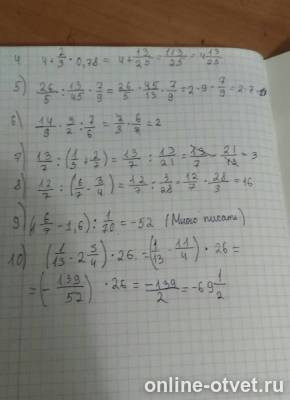 4 4 + 2/3 · 0,78 = 4 + 13/25 = 113/25 = 4 13/25
5) 26/5 : 13/45 · 7/9 = 26/5 · 45/13 · 7/9 = 2 · 9 · 7/9 = 2 · 7 =
6) 14/9 · 3/2 : 7/6 = 7/3 · 6/7 = 2
7) 13/7 : (1/3 + 2/7) = 13/7 : 13/21 = 13/7 · 21/13 = 3
8) 12/7 : (6/7 - 3/4) = 12/7 : 3/28 = 12/7 · 28/3 = 16
9) 6/7 - 1,6) : 1/70 = -52 (Много писать)
10) (1/13 - 2 3/4) · 26 = (1/13 - 11/4) · 26 =
= (- 139/52) · 26 = -139/2 = -69 1/2
online-otvet.ru